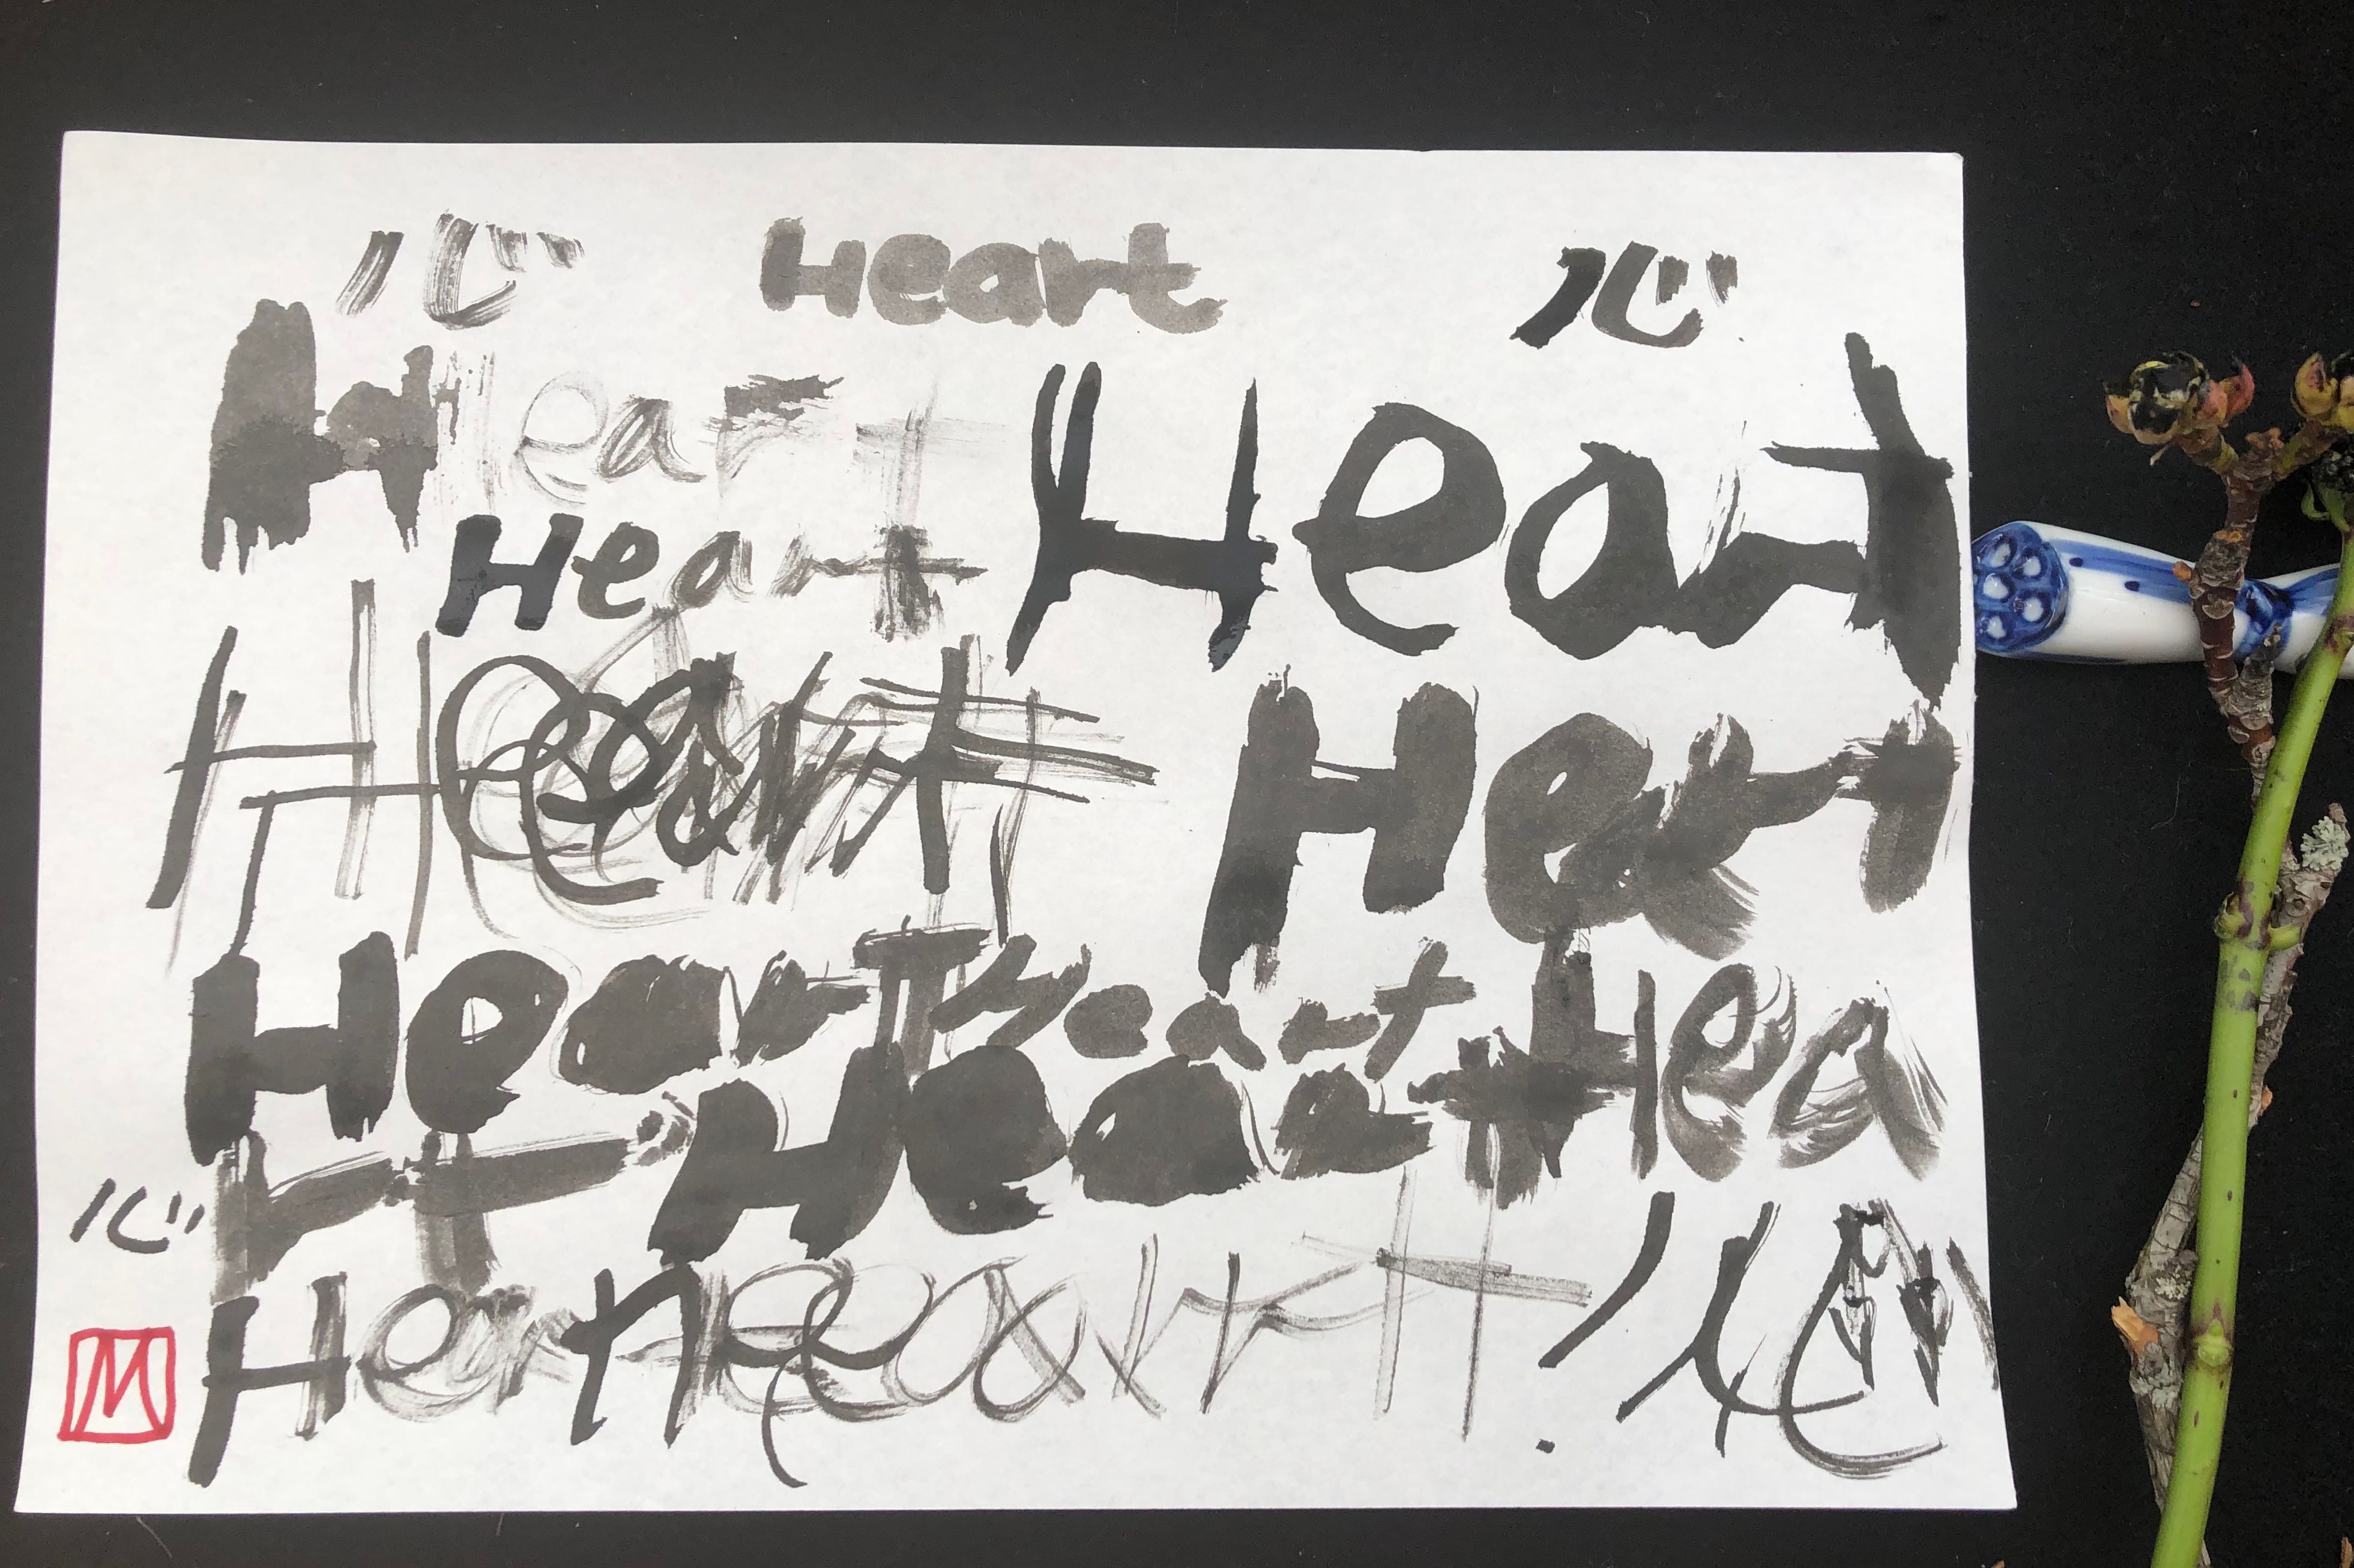 心 Heart 心
Heart Heart
Heart
Heart Heart
Heart Heart Hea
心 rt Heart
Heart Heart 心
M